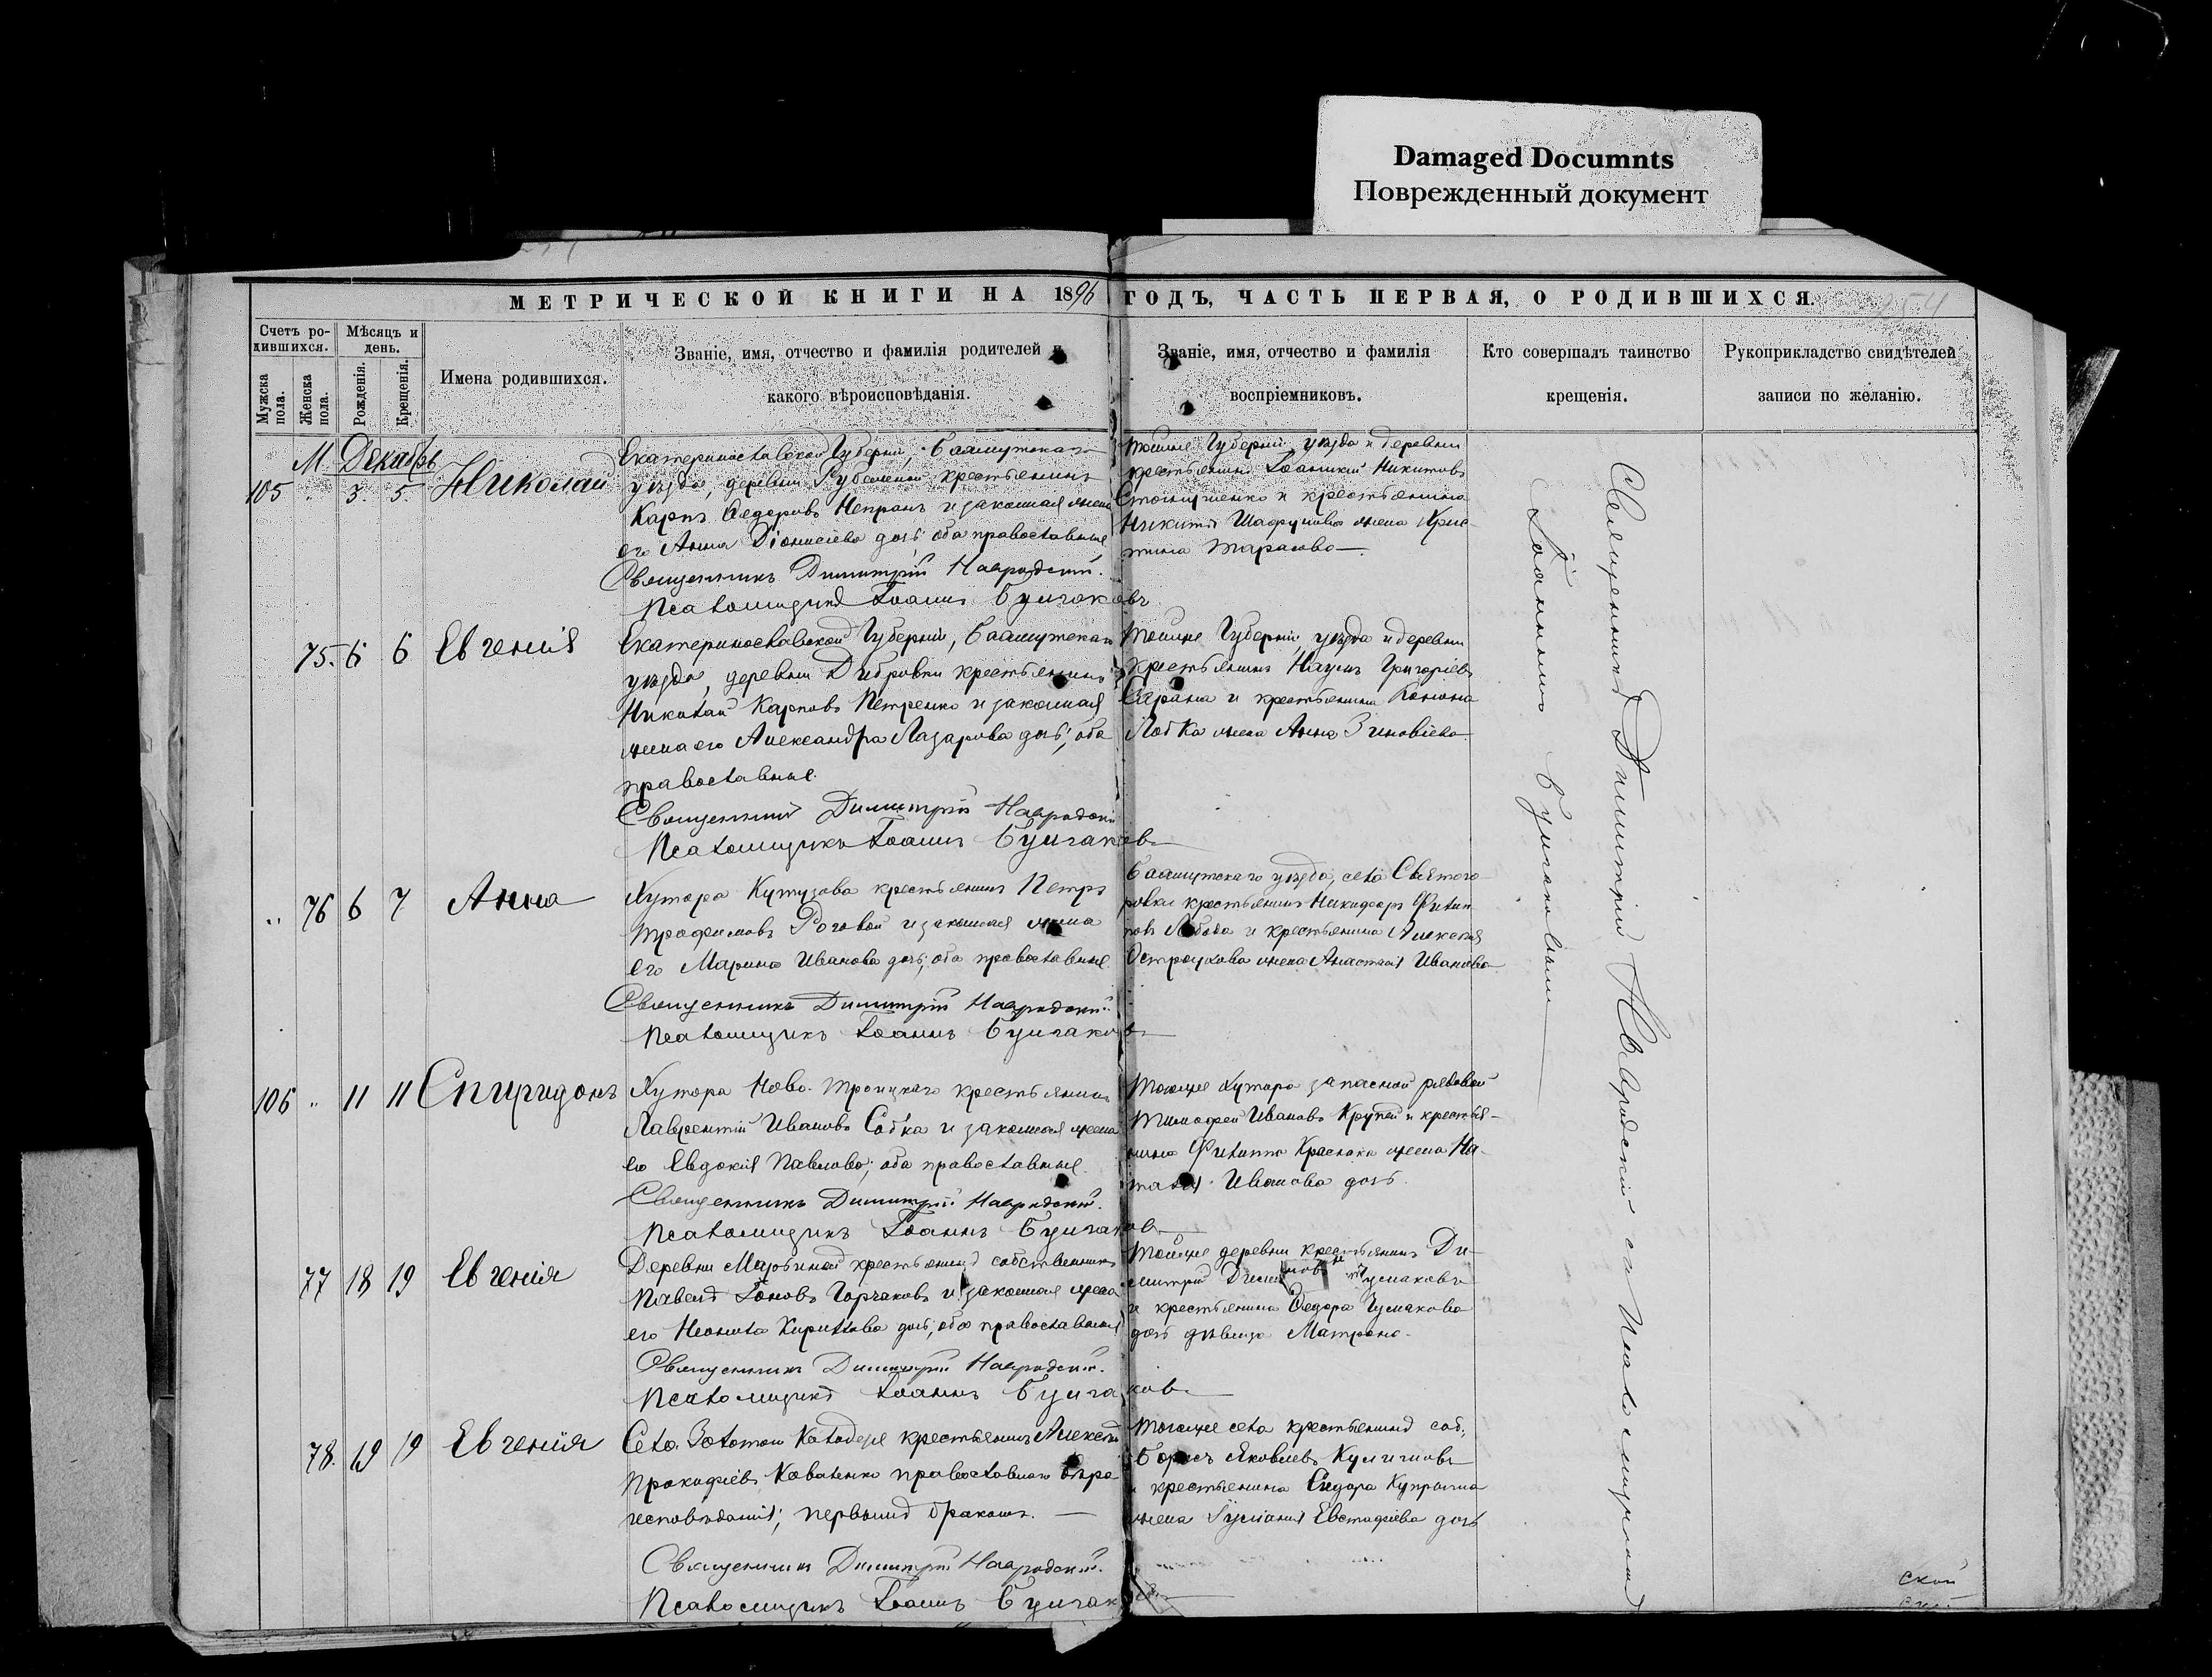 Damaged Documnts
Поврежденный документ
МЕТРИЧЕСКОЙ КНИГИ НА 1896 ГОДЪ, ЧАСТЬ ПЕРВАЯ, О РОДИВШИХСЯ.
254
Счетъ ро-
дившихся.
Мѣсяцъ и
день.
Мужска
пола.
Женска
пола.
Рожденія.
Крещенія.
Имена родившихся.
Званіе, имя, отчество и фамилія родителей и
какого вѣроисповѣданія.
Званіе, имя, отчество и фамилія
воспріемниковъ.
Кто совершалъ таинство
крещенія.
Рукоприкладство свидѣтелей
записи по желанію.
М Декабрь
105 " 3. 5. Николай
Екатеринославской Губерніи, Бахмутскаго
уѣзда, деревни крестьянинъ
Карпъ Федоровъ и законная жена
его Анна Діонисіева дочь, оба православные
Священникъ Димитрій Навродскій.
Псаломщикъ Іоаннъ Булгаковъ
тойже Губерніи, уѣзда и деревни
крестьянинъ Іоанникій Никитовъ
и крестьянина
Никиты жена Хрис-
тина Тарасова
75. 6 6 Евгенія
Екатеринославской Губерніи, Бахмутскаго
уѣзда, деревни Дибровки крестьянинъ
Николай Карповъ Петренко и законная
жена его Александра Лазарова дочь, оба
православные.
Священникъ Димитрій Навродскій
Псаломщикъ Іоаннъ Булгаковъ
Тойже Губерніи, уѣзда и деревни
крестьянинъ Наумъ Григоріевъ
и крестьянина Конона
жена Анна Зиновіева
" 76 6 7 Анна
Хутора Кутузова крестьянинъ Петръ
Трофимовъ Роговой и законная жена
его Марина Иванова дочь, оба православные.
Священникъ Димитрій Навродскій.
Псаломщикъ Іоаннъ Булгаковъ
Бахмутскаго уѣзда, села Святого-
ровки крестьянинъ Никифоръ Филип-
повъ Лобода и крестьянина Алексія
Остроухова жена Анастасія Иванова
106 " 11 11 Спиридонъ
Хутора Ново-Троицкаго крестьянинъ
Лаврентій Ивановъ Собка и законная жена
его Евдокія Павлова, оба православные.
Священникъ Димитрій Навродскій.
Псаломщикъ Іоаннъ Булгаковъ
Тогоже хутора запасной рядовой
Тимофей Ивановъ и крестья-
нина Филиппа жена На-
талія Иванова дочь.
77 18 19 Евгенія
Деревни крестьянинъ собственникъ
Павелъ Іоновъ Горчаковъ и законная жена
его Неонила Кириллова дочь, оба православные
Священникъ Димитрій Навродскій.
Псаломщикъ Іоаннъ Булгаковъ
Тойже деревни крестьянинъ Ди-
митрій Чумаковъ
и крестьянина Федора Чумакова
дочь дѣвица Матрона.
78. 19 19 Евгенія
Села Золотой Колодезь крестьянинъ Алексѣй
Прокофіевъ Коваленко православнаго вѣро-
исповѣданія, первымъ бракомъ.
Священникъ Димитрій Навродскій.
Псаломщикъ Іоаннъ Булгаковъ
Тогоже села крестьянинъ соб.
Борисъ Яковлевъ
и крестьянина Сидора
жена Іуліанія Евстафіева дочь
Священникъ Димитрій Навродскій съ Псаломщикомъ
Іоанномъ Булгаковымъ
ской